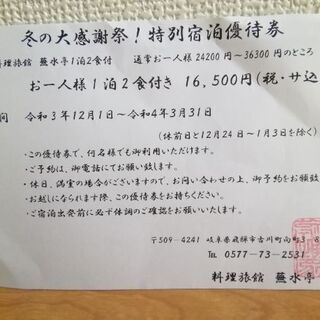 冬の大感謝祭！特別宿泊優待券
料理旅館 蕪水亭1泊2食付 通常お一人様24200円～36300円のところ
お一人様1泊2食付き 16,500円(税・サ込
間 令和3年12月1日～令和4年3月31日
(休前日と12月24日～1月3日を除く)
・この優待券で、何名様でも御利用いただけます。
・ご予約は、御電話にてお願い致します。
・休日、満室の場合がございますので、お問い合わせの上、御予約をお願い
お越しになられます際、この優待券をお持ちください。
・ご宿泊出発前に必ず体調のご確認をお願いいたします。
〒509-4241 岐阜県飛騨市古川町向町3-8
TEL 0577-73-2531
料理旅館 蕪水亭